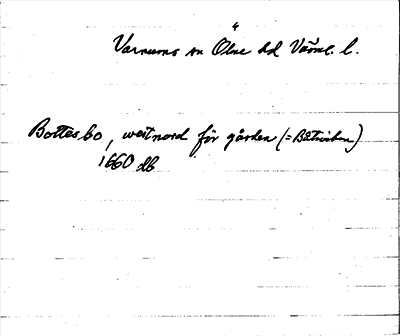 Varnums sn Ölme hd Värml. l.
Bottesbo, westnord för gården (=Båtsviken)
1660 db